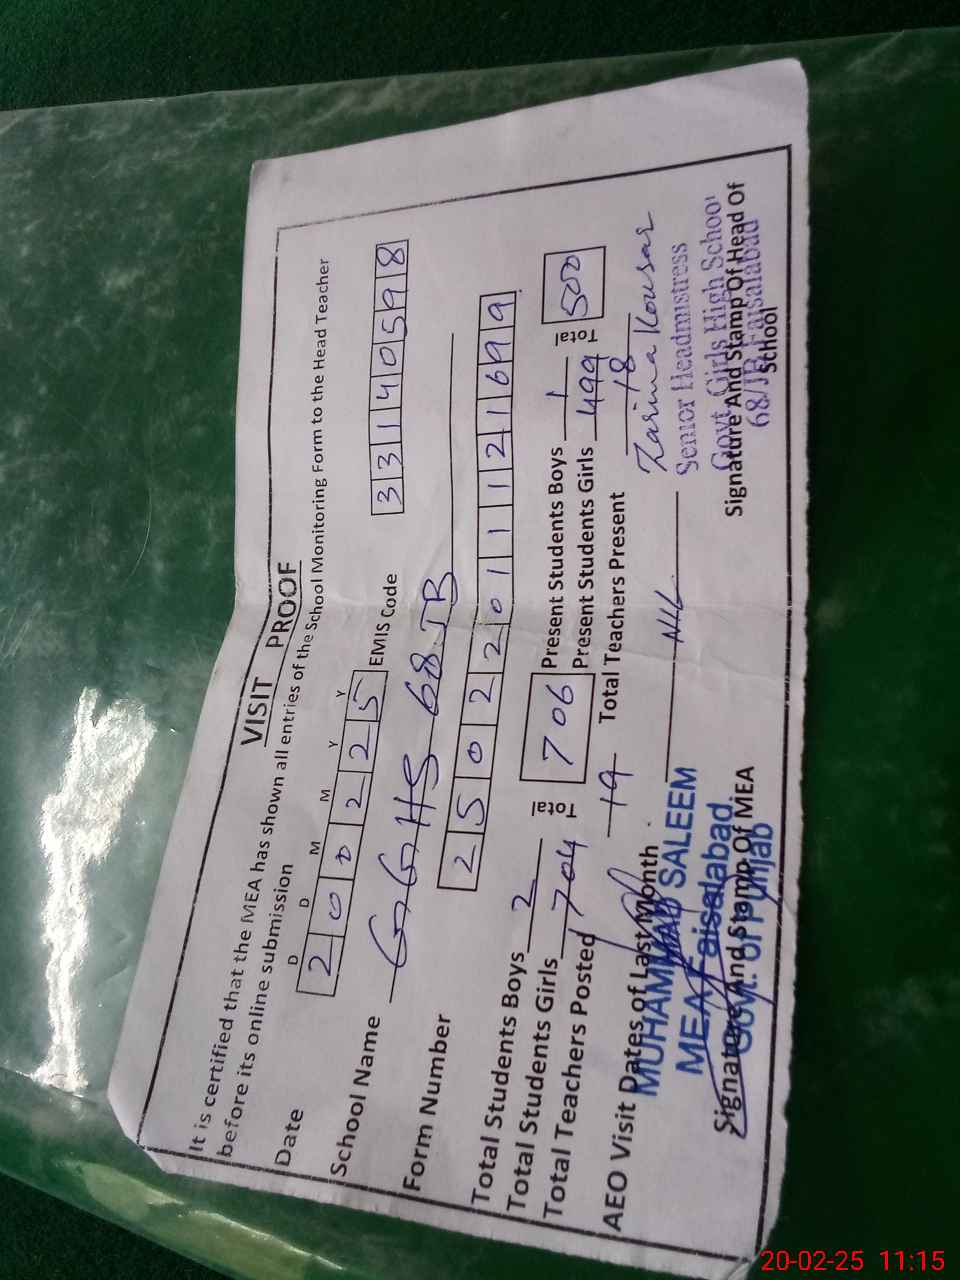 VISIT PROOF
It is certified that the MEA has shown all entries of the School Monitoring Form to the Head Teacher
before its online submission
D D M M Y Y
Date 200225 EMIS Code 33140598
School Name GGHS 68 JB
Form Number 2502201121699
Total Students Boys 2 Total 706 Present Students Boys 1 Total 500
Total Students Girls 704 Present Students Girls 499
Total Teachers Posted 19 Total Teachers Present 18
AEO Visit Dates of Last Month NIL
Zarina Kousar
MUHAMMAD SALEEM
MEA Faisalabad
Govt. of Punjab
Signature And Stamp Of MEA
Senior Headmistress
Govt. Girls High School
68/JB Faisalabad
Signature And Stamp Of Head Of
School
20-02-25 11:15